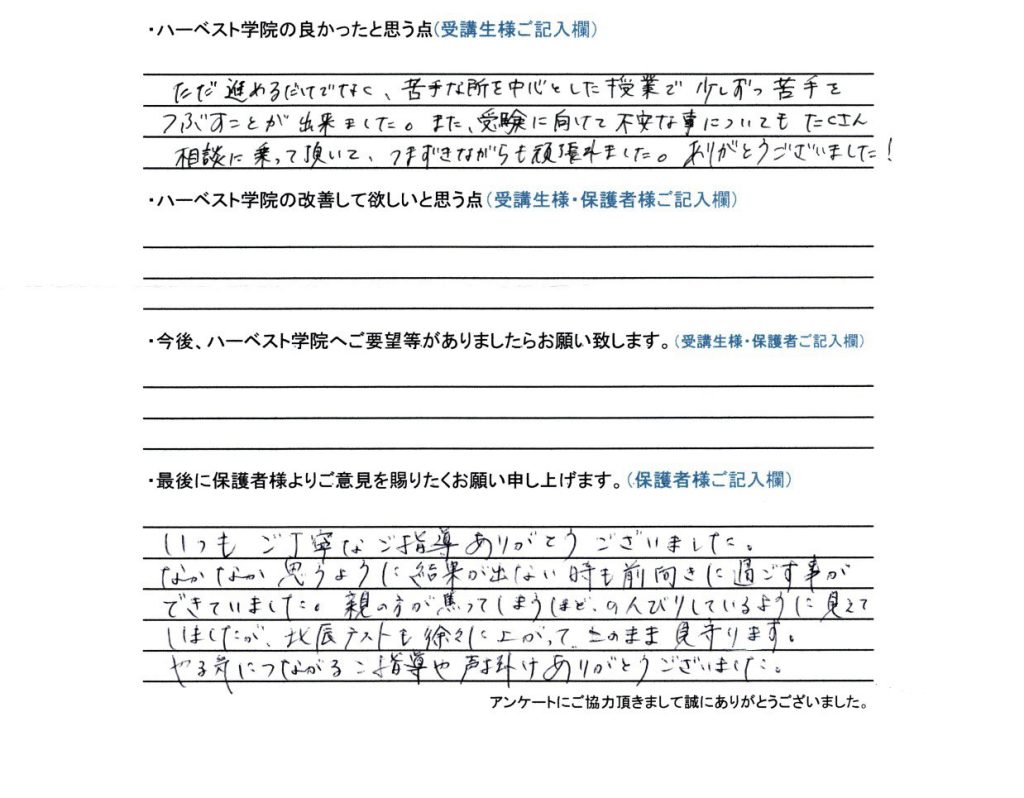 ・ハーベスト学院の良かったと思う点(受講生様ご記入欄)
ただ進めるだけでなく、苦手な所を中心とした授業で少しずつ苦手を
つぶすことが出来ました。また、受験に向けて不安な事についてもたくさん
相談に乗って頂いて、つまずきながらも頑張れました。ありがとうございました!
・ハーベスト学院の改善して欲しいと思う点(受講生様・保護者様ご記入欄)
・今後、ハーベスト学院へご要望等がありましたらお願い致します。(受講生様・保護者ご記入欄)
・最後に保護者様よりご意見を賜りたくお願い申し上げます。(保護者様ご記入欄)
いつもご丁寧なご指導ありがとうございました。
なかなか思うように結果が出ない時も前向きに過ごす事が
できていました。親の方が焦ってしまうほど、のんびりしているように見えて
しましたが、北辰テストも徐々に上がって このまま見守ります。
やる気につながるご指導や声掛けありがとうございました。
アンケートにご協力頂きまして誠にありがとうございました。